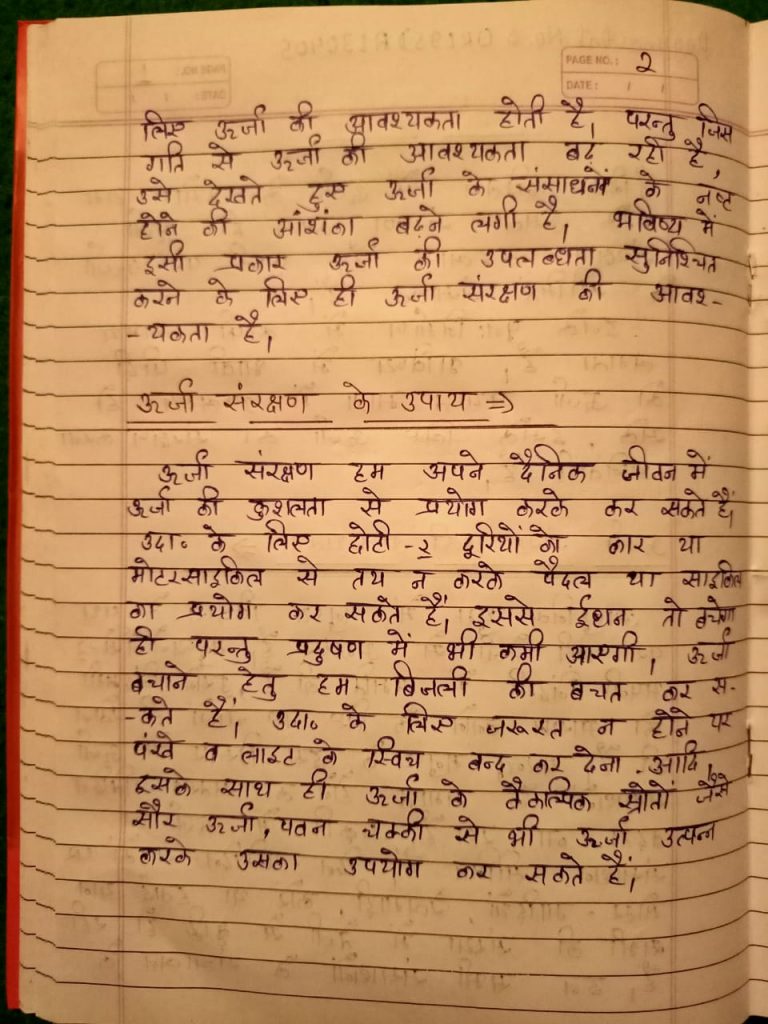 PAGE NO.: २
DATE: / /
लिए ऊर्जा की आवश्यकता होती है, परन्तु जिस
गति से ऊर्जा की आवश्यकता बढ़ रही है,
उसे देखते हुए ऊर्जा के संसाधनों के नष्ट
होने की आंशंका बढ़ने लगी है, भविष्य में
इसी प्रकार ऊर्जा की उपलब्धता सुनिश्चित
करने के लिए ही ऊर्जा संरक्षण की आवश-
-यकता है,
ऊर्जा संरक्षण के उपाय ⇒
ऊर्जा संरक्षण हम अपने दैनिक जीवन में
ऊर्जा की कुशलता से प्रयोग करके कर सकते हैं,
उदा० के लिए छोटी-२ दूरियों को कार या
मोटरसाइकिल से तय न करके पैदल या साइकिल
का प्रयोग कर सकते हैं, इससे ईंधन तो बचेगा
ही परन्तु प्रदुषण में भी कमी आएगी, ऊर्जा
बचाने हेतु हम बिजली की बचत कर स-
-कते हैं, उदा० के लिए जरूरत न होने पर
पंखे व लाइट के स्विच बन्द कर देना आदि,
इसके साथ ही ऊर्जा के वैकल्पिक स्रोतों जैसे
सौर ऊर्जा, पवन चक्की से भी ऊर्जा उत्पन्न
करके उसका उपयोग कर सकते हैं,